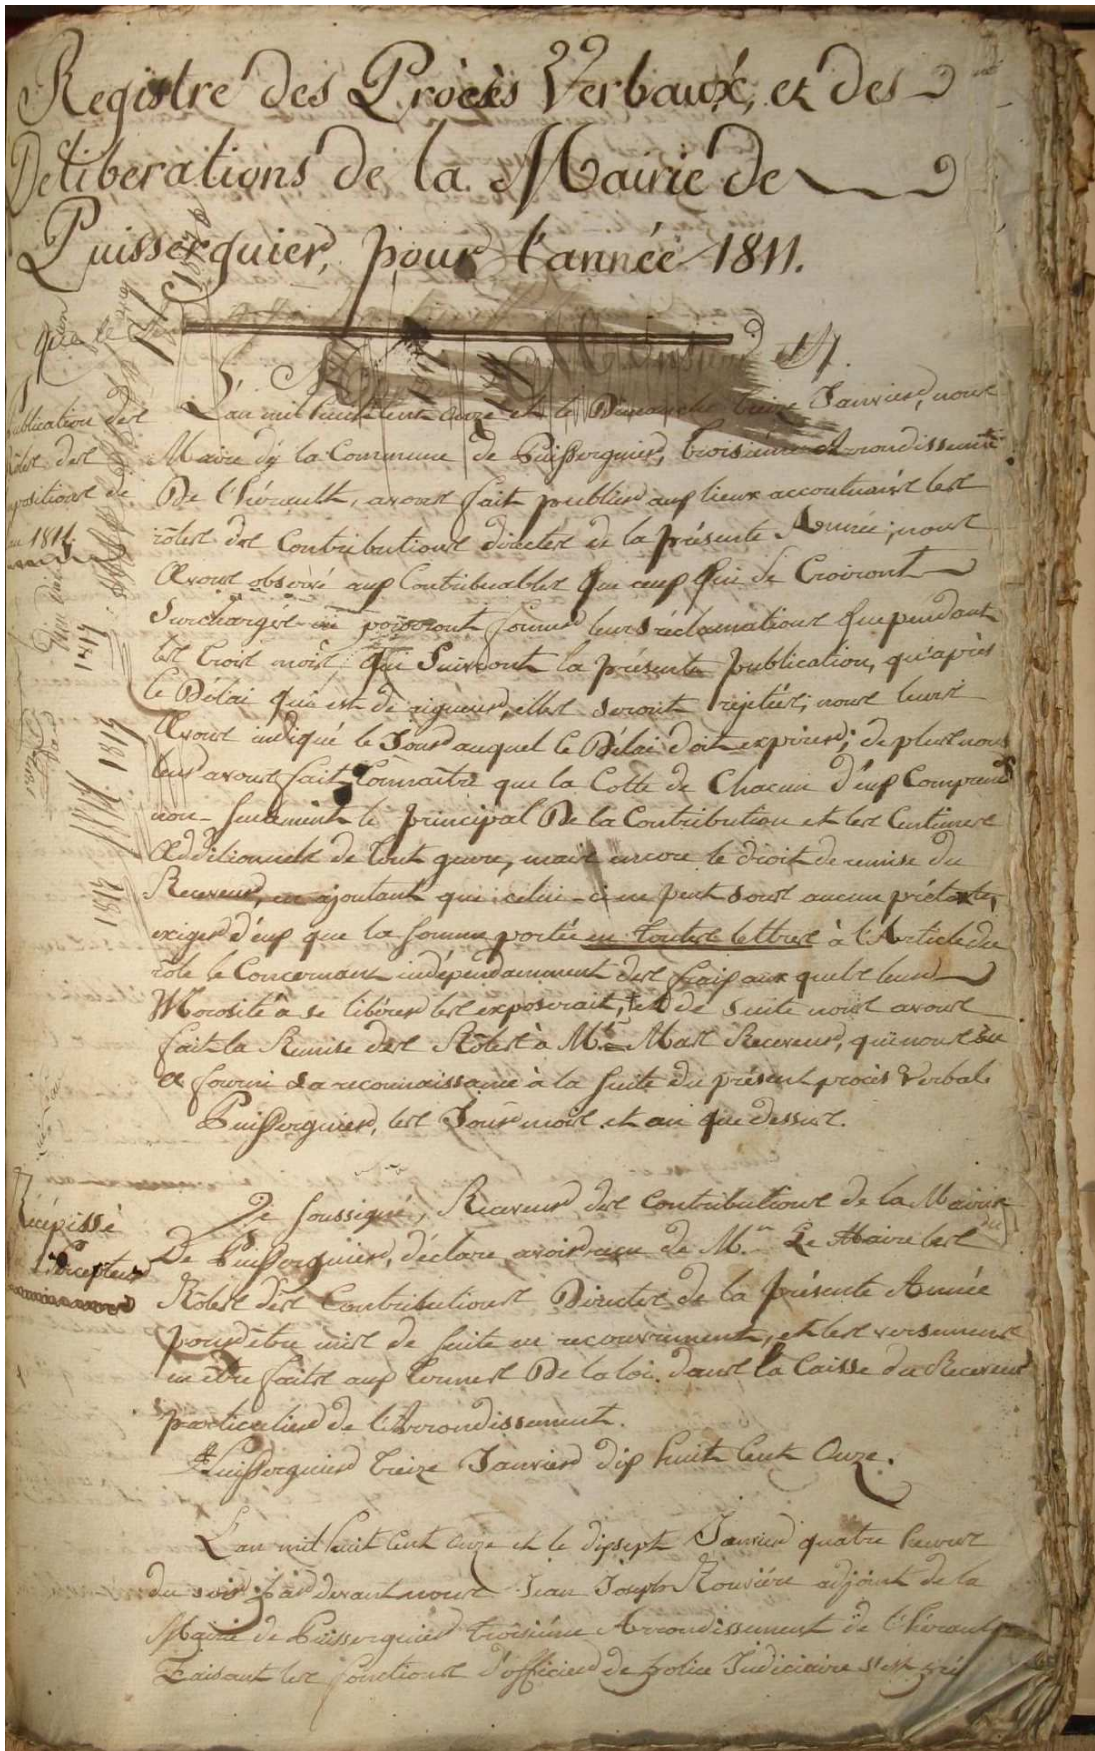 Registre des Procès Verbaux, et des
Deliberations de la Mairie de
Puisserguier, pour l'année 1811.
L'an mil huit cent onze et le Dimanche treize Janvier, nous
Publication des
Maire de la Commune de Puisserguier, troisième arrondissement
rôles des
De l'hérault, avons fait publier aux lieux accoutumés les
impositions de
rôles des Contributions directes de la présente Année; nous
1811.
Avons observé aux Contribuables que ceux qui se Croiront
Surchargés ne pourront former leurs réclamations que pendant
les trois mois, qui Suivront la présente publication, qu'après
le Délai qui est de rigueur, elles seront rejetées; nous leurs
Avons indiqué le Jour auquel le Délai doit expirer; de plus nous
leur avons fait Connaître que la Cotte de Chacun d'eux Comprend
non-seulement le principal De la Contribution et les Centimes
Additionnels de tout genre, mais encore le droit de remise du
Receveur, en ajoutant que celui-ci ne peut sous aucun prétexte,
exiger d'eux que la somme portée en toutes lettres à l'Article du
rôle le Concernant indépendamment des frais aux quels leur
Morosité à se libérer les exposerait, et de suite nous avons
fait la Remise des Rôles à Mr. Mas Receveur, qui nous en
a fourni sa reconnaissance à la suite du présent procès verbal.
Puisserguier, les Jour mois et an que dessus.
Récépissé
Je soussigné, Receveur des Contributions de la Mairie
De Puisserguier, déclare avoir reçu de M. Le Maire les
Percepteur
Rôles des Contributions Directes de la présente Année
pour être mis de suite en recouvrement, et les versemens
en être faits aux termes De la loi dans la Caisse du Receveur
particulier de l'Arrondissement.
Puisserguier treize Janvier dix huit Cent Onze.
L'an mil huit Cent onze et le dix sept Janvier quatre heures
du soir par devant nous Jean Joseph Rouvière adjoint de la
Mairie de Puisserguier troisième Arrondissement de l'hérault
Faisant les fonctions d'officier de police Judiciaire s'est
1817
1817
1817